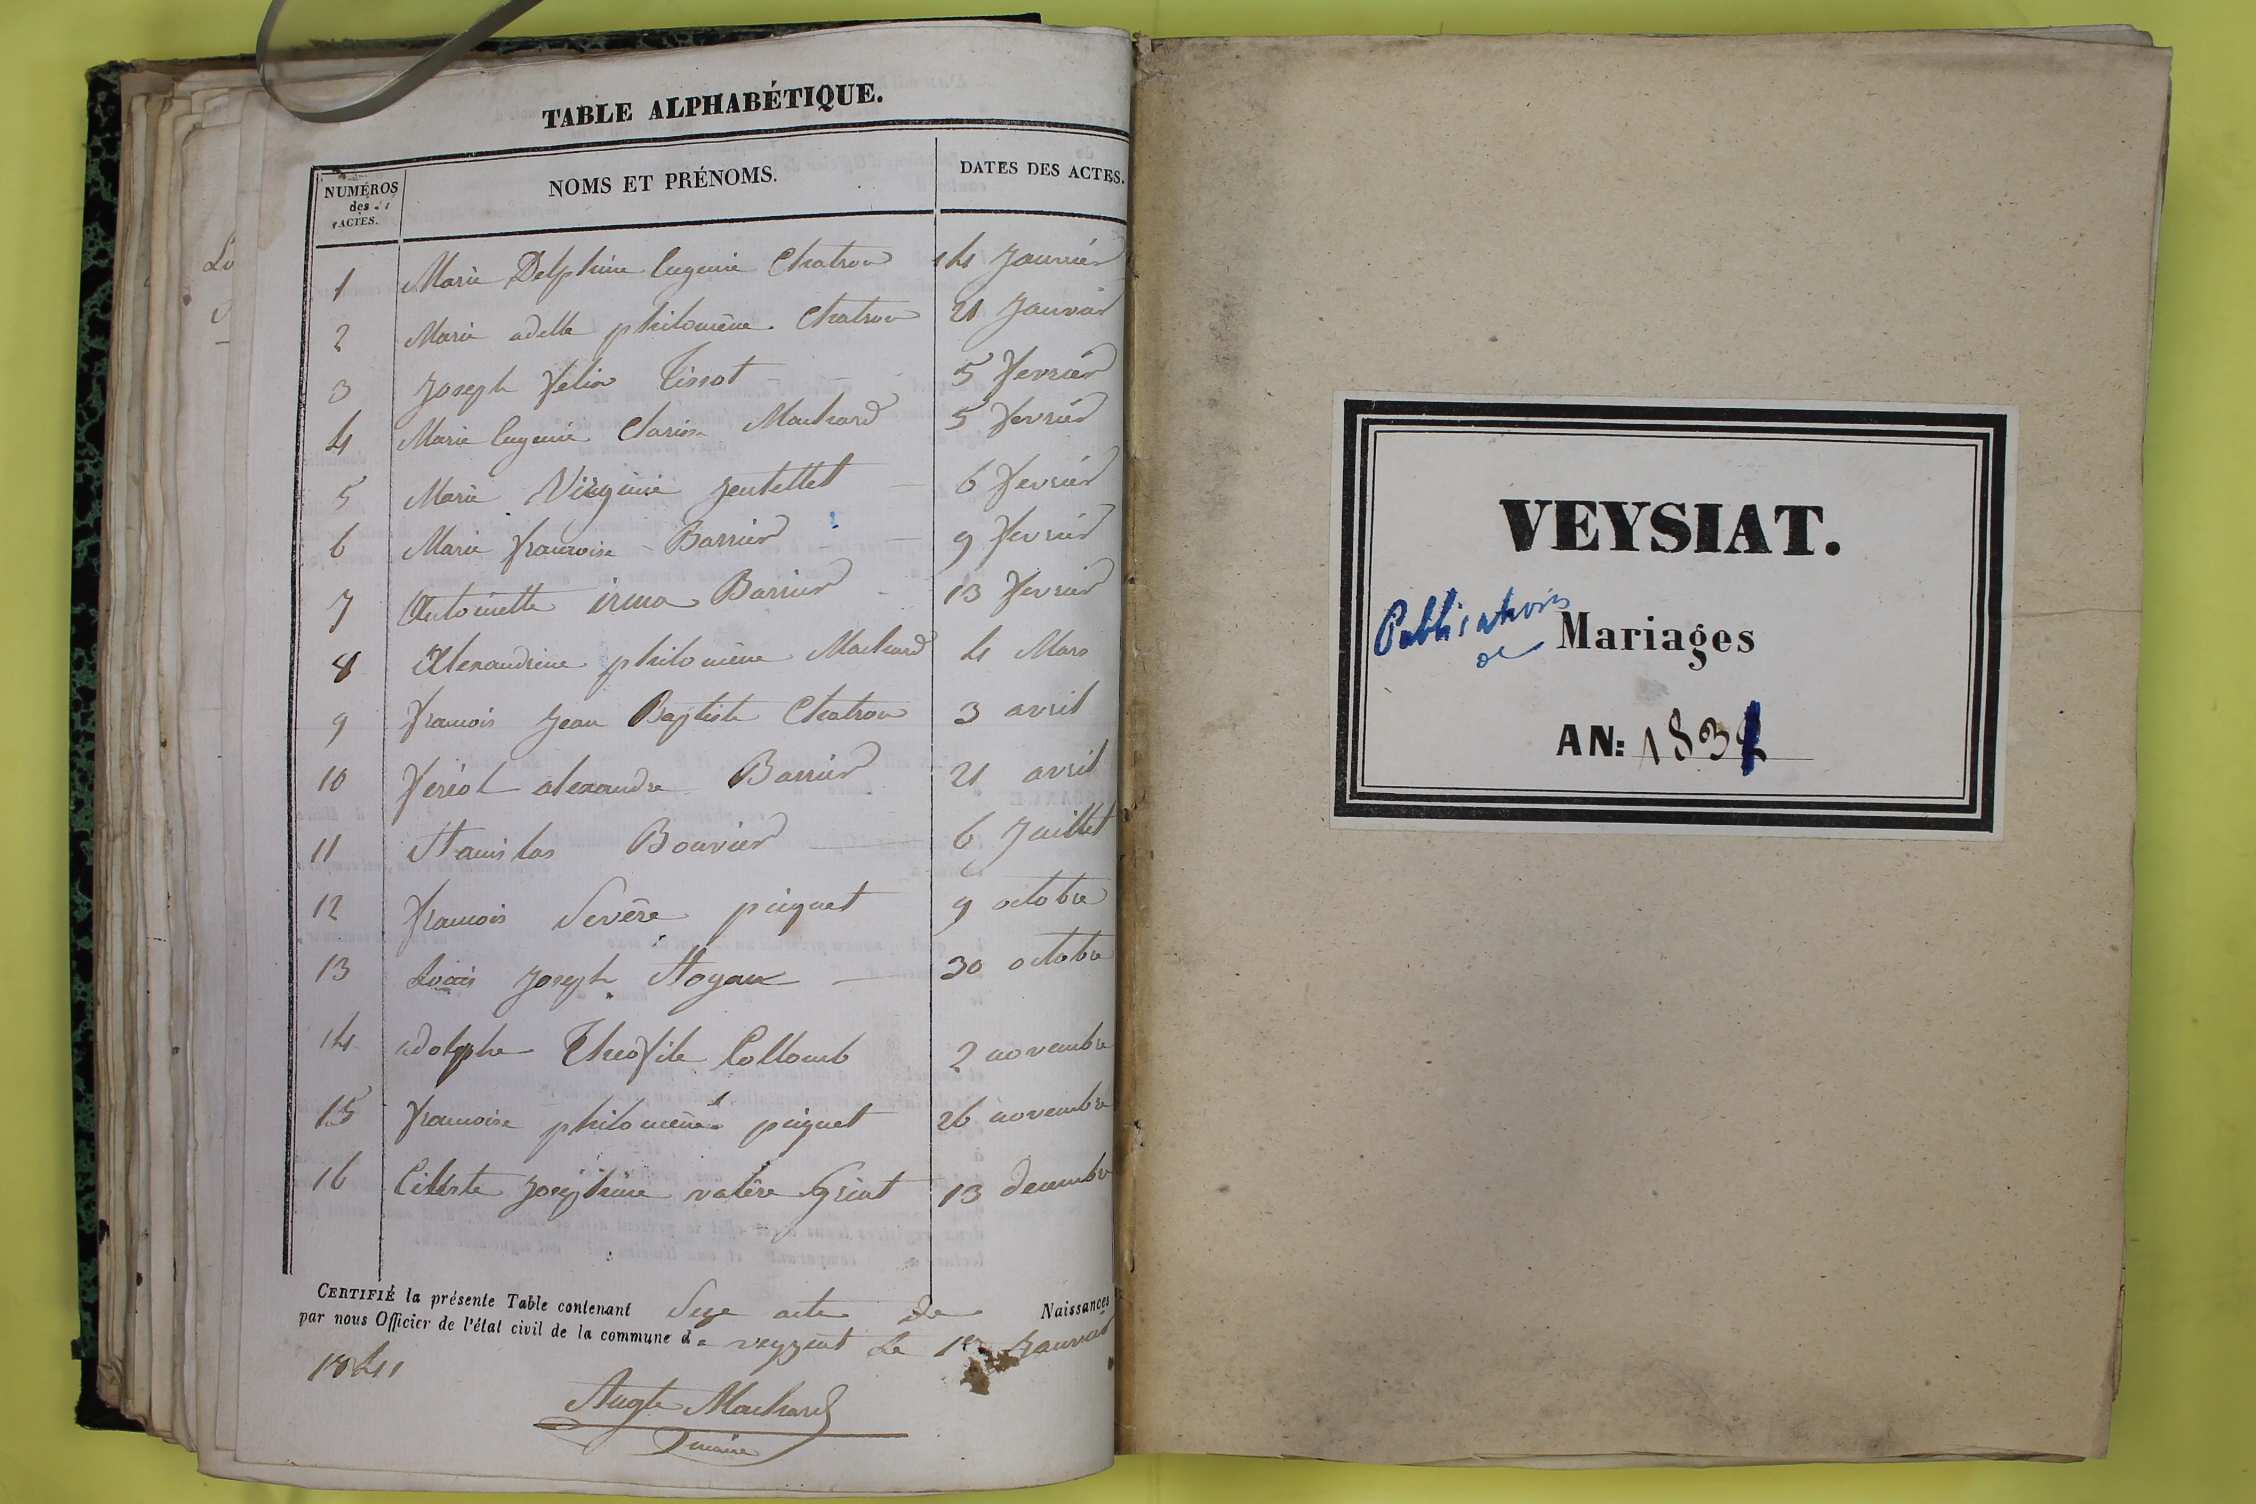 TABLE ALPHABÉTIQUE.
NUMÉROS des ACTES. NOMS ET PRÉNOMS. DATES DES ACTES.
1 Marie Delphine Eugenie Chatron 14 Janvier
2 Marie adelle philomène Chatron 21 Janvier
3 Joseph Félix Tissot 5 Fevrier
4 Marie Eugenie Clarisse Machard 5 fevrier
5 Marie Virginie Jeutellet 6 Fevrier
6 Marie francoise Barrier 9 Fevrier
7 Antoinette irma Barrier 13 Fevrier
8 Alexandrine philomène Machard 4 Mars
9 francois Jean Baptiste Chatron 3 avril
10 feriol alexandre Barrier 21 avril
11 Stanislas Bouvier 6 Juillet
12 francois Sevère piquet 9 octobre
13 Louis Joseph Hogaux 30 octobre
14 adolphe Theofile Collomb 2 novembre
15 francoise philomène piquet 26 novembre
16 Celeste Josephine valère Griot 13 decembre
CERTIFIÉ la présente Table contenant Seze acte de Naissances
par nous Officier de l'état civil de la commune de veyziat Le 1er Janvier
1841
Augte Machard
maire
VEYSIAT.
Publications de Mariages
AN: 1832